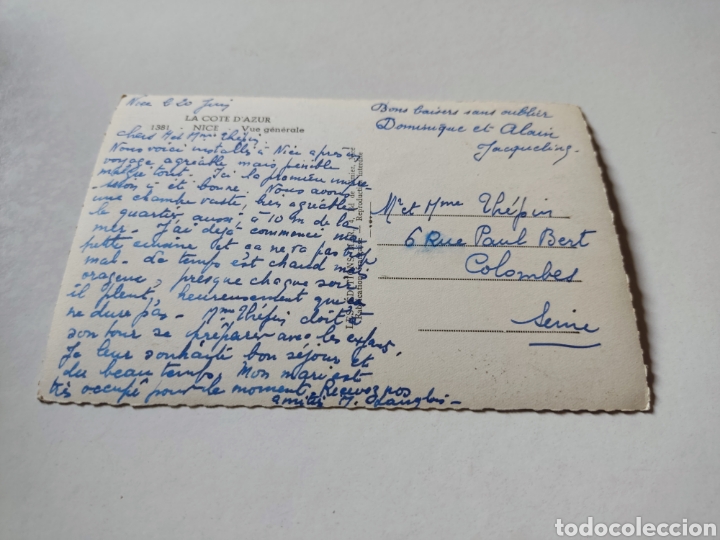 Nice le 20 Juin
LA COTE D'AZUR
1381 - NICE - Vue générale
chers Mr et Mme Thépin,
Nous voici installés à Nice après un
voyage agréable mais pénible
malgré tout. Ici la première impres-
sion a été bonne. Nous avons
une chambre vaste, très agréable
le quartier aussi, à 10 m de la
mer. J'ai déjà commencé ma
petite semaine et ça ne va pas trop
mal. Le temps est chaud mais
orageux, presque chaque soir
il pleut, heureusement que ça
ne dure pas. Mme Thépin doit à
son tour se préparer avec les enfants,
Je leur souhaite bon séjour et
du beau temps. Mon mari est
très occupé pour le moment. Recevez nos
amitiés M. Langlois -
Bons baisers sans oublier
Dominique et Alain
Jacqueline -
Mr et Mme Thépin
6 Rue Paul Bert
Colombes
Seine
todocoleccion
todocoleccion.net